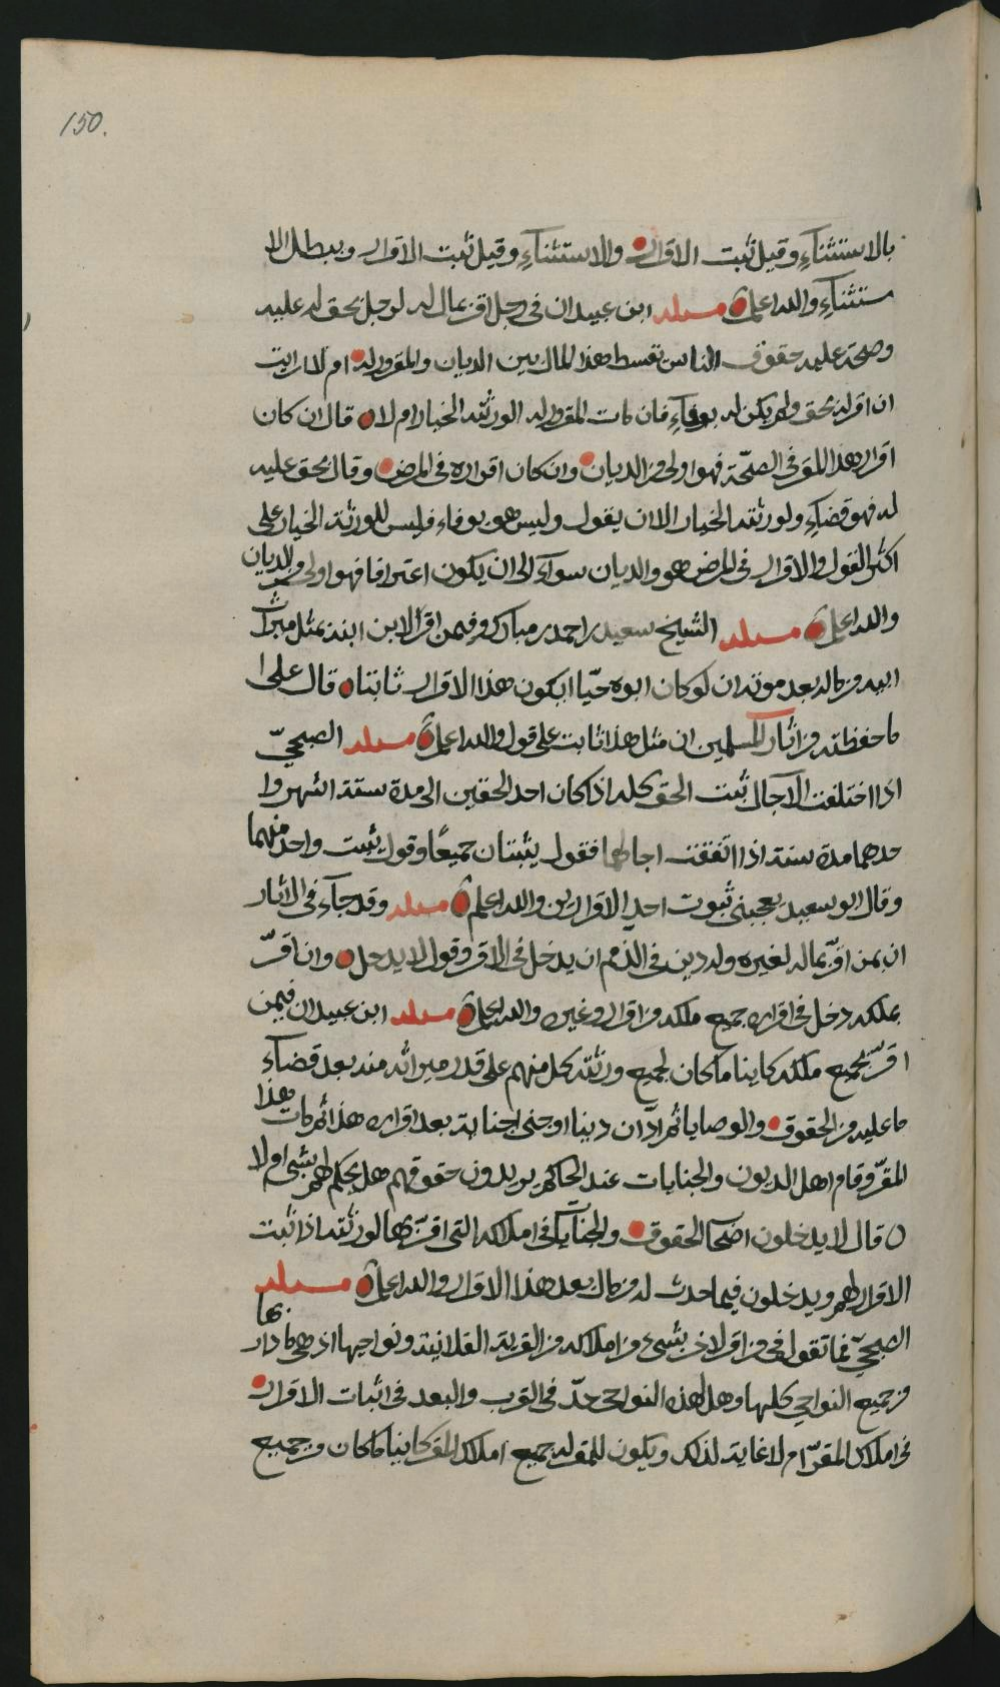 150.
بالاستثناءِ وقيل ثبت الاقرار والاستثناءِ وقيل ثبت الاقرار ويبطل الا
ستثناءِ والله اعلم مسئلة ابن عبيدان في رجل اقر بمال له لرجل بحق له عليه
وصحة عليه حقوق الناس تقسط هذا المال بين الديان والمقرور له ام لا ارايت
ان اقر له بحق ولم يكن له بوفاءِ فان مات المقرور له الورثته الخيار ام لا قال ان كان
اقرار هذا المقر في الصحّة فهو اولى من الديان وان كان اقراره في المرض وقال بحق عليه
له فهو قضاءِ ولورثته الخيار الا ان يقول وليس هو بوفاء فليس للورثة الخيار على
اكثر القول والاقرار في المرض هو والديان سوآء الى ان يكون اعترافا فهو اولى من الديان
والله اعلم مسئلة الشيخ سعيد بن احمد بن مبارك وفيمن اقر لابن ابنه بمثل ميراث
ابيه من ماله بعد موته ان لو كان ابوه حيّا ايكون هذا الاقرار ثابتا قال على
ما حفظته من اثار المسلمين ان مثل هذا ثابت على قول والله اعلم مسئلة الصبحيّ
اذا اختلفت الآجال ثبت الحق كله اذا كان احد الحقين الى مدة ستة اشهر وا
حدهما مدة سنة اذا اتفقت اجالها فقول يثبتان جميعًا وقول يثبت واحد منهما
وقال ابو سعيد يعجبني ثبوت احد الاقرارين والله اعلم مسئلة وقد جآء في الاثار
ان من اقرّ بماله لغيره وله دين في الذمم ان يدخل في الاقر وقول لا يدخل وان اقرّ
بملكه دخل في اقراره جميع ملكه من اقرار وغيره والله اعلم مسئلة ابن عبيدان فيمن
اقرّ بجميع ملكه كاينا ما كان لجميع ورثته كل منهم على قدر ميراثه منه بعد قضاءِ
ما عليه من الحقوق والوصايا ثم ادّان دينا او جنى جناية بعد اقراره هذا ثم مات هذا
المقرّ وقام اهل الديون والجنايات عند الحاكم يريدون حقوقهم هل يحكم لهم بشي ام لا
قال لا يدخلون اصحاب الحقوق والجنايات في املاكه التي اقرّ بها لورثته اذا ثبت
الاقرار لهم ويدخلون فيما احدث له من مال بعد هذا الاقرار والله اعلم مسئلة
الصبحيّ فما تقول في من اقر لاخر بشيء من املاكه من القرية الفلانية ونواحيها اذ هي ما دار بها
من جميع النواحي كلها وهل لهذه النواحي حدّ في القرب والبعد في اثبات الاقرار
في املاك المقرّ ام لا غاية لذلك ويكون للمقر له جميع املاك المقر كاينا ما كان من جميع